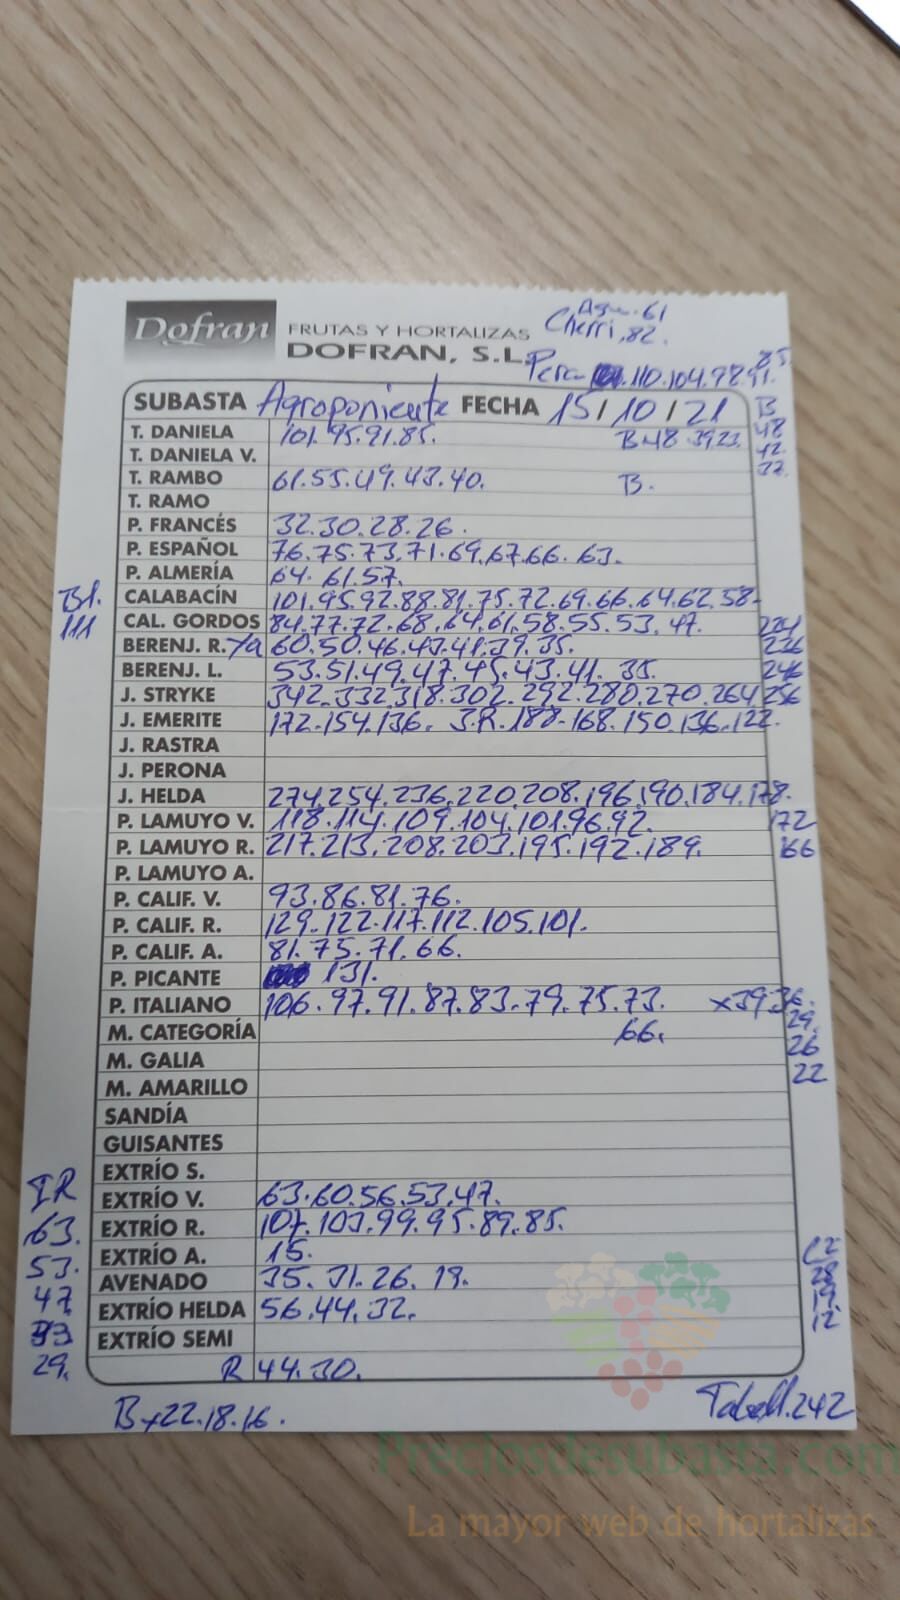 Dofran
FRUTAS Y HORTALIZAS
DOFRAN, S.L.
Agu. 61
Cherri, 82.
Pera 110.104.98.91.
85
SUBASTA Agroponiente FECHA 15/10/21
B
48
42
37.
T. DANIELA 101.95.91.85. B 48 39 23
T. DANIELA V.
T. RAMBO 61.55.49.43.40. B.
T. RAMO
P. FRANCÉS 32.30.28.26.
P. ESPAÑOL 76.75.73.71.69.67.66.63.
P. ALMERÍA 64.61.57.
Bl.
111
CALABACÍN 101.95.92.88.81.75.72.69.66.64.62.58-
CAL. GORDOS 84.77.72.68.64.61.58.55.53.47.
BERENJ. R. 60.50.46.43.41.39.35.
BERENJ. L. 53.51.49.47.45.43.41.35.
236
246
256
J. STRYKE 342.332.318.302.292.280.270.264
J. EMERITE 172.154.136. J.R.188.168.150.136.122.
J. RASTRA
J. PERONA
J. HELDA 274.254.236.220.208.196.190.184.178.
172
166
P. LAMUYO V. 118.114.109.104.101.96.92.
P. LAMUYO R. 217.213.208.203.195.192.189.
P. LAMUYO A.
P. CALIF. V. 93.86.81.76.
P. CALIF. R. 129.122.117.112.105.101.
P. CALIF. A. 81.75.71.66.
P. PICANTE 131.
P. ITALIANO 106.97.91.87.83.79.75.73. x39.36.
29.
26
22
M. CATEGORÍA 66.
M. GALIA
M. AMARILLO
SANDÍA
GUISANTES
EXTRÍO S.
IR
63.
53.
47.
33
29.
EXTRÍO V. 63.60.56.53.47.
EXTRÍO R. 107.103.99.95.89.85.
EXTRÍO A. 15.
AVENADO 35.31.26.19.
EXTRÍO HELDA 56.44.32.
EXTRÍO SEMI
28
19.
12.
R 44.30.
Bx22.18.16.
Tabell.242
Preciosdesubasta.com
La mayor web de hortalizas